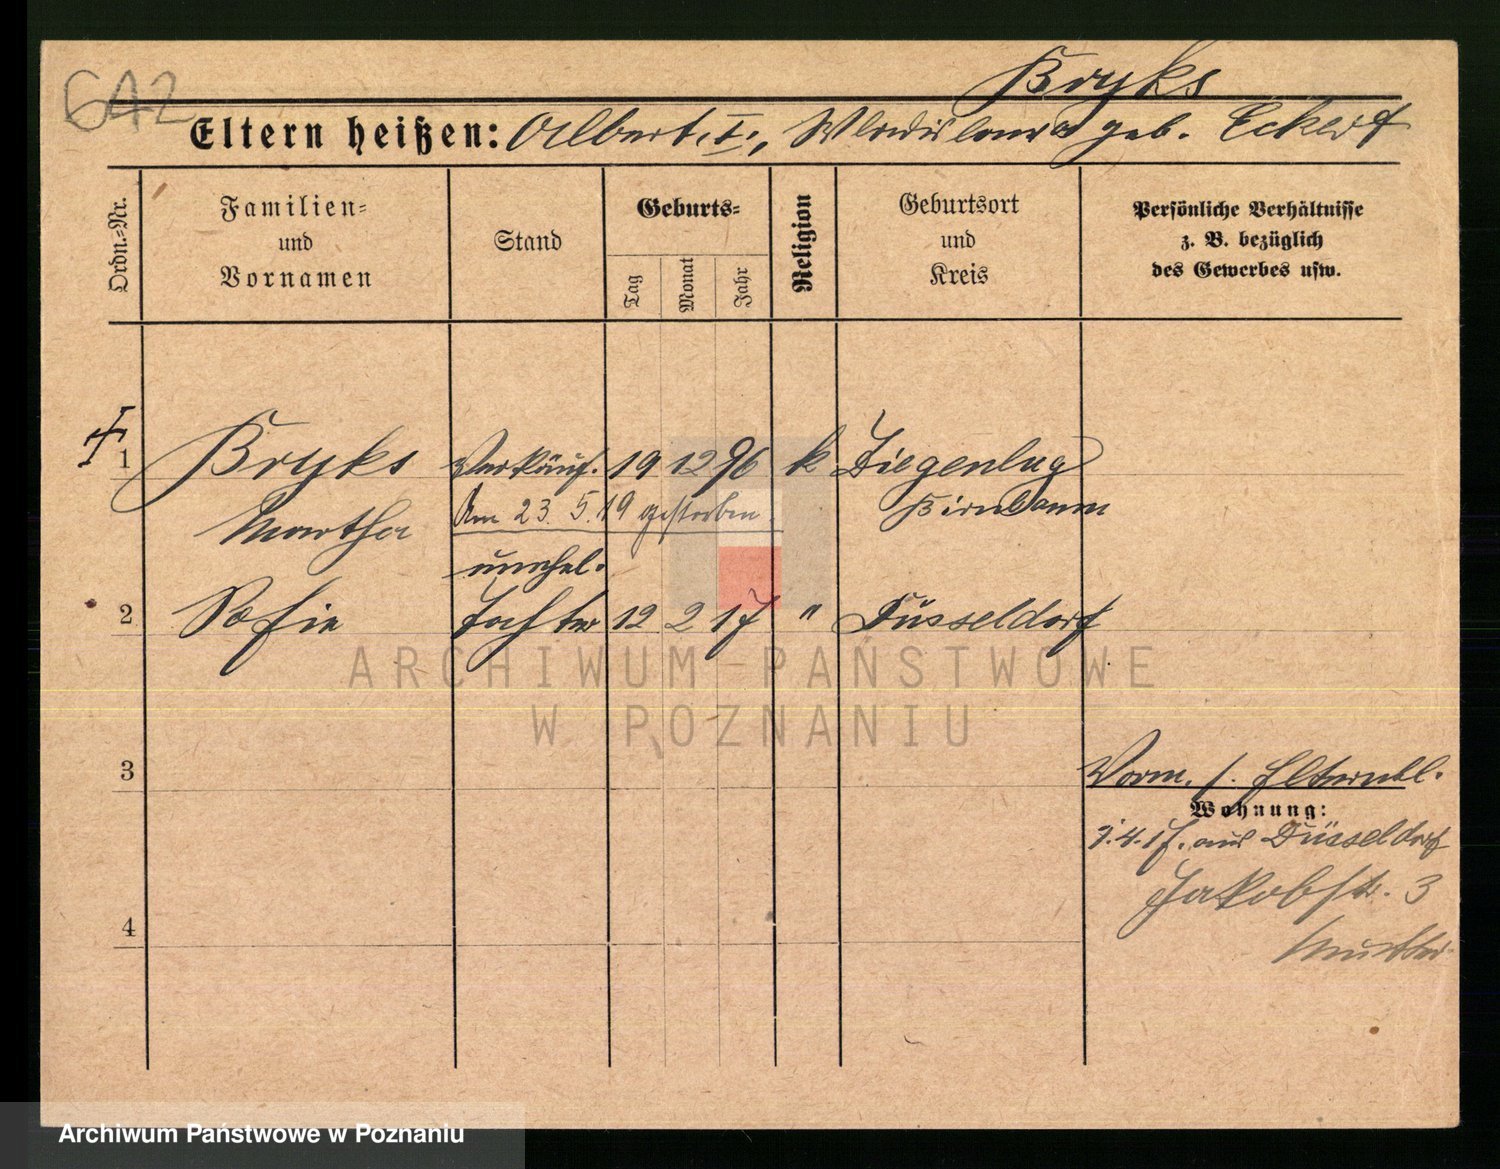 642
Bryks
Eltern heißen: Albert, †., Wladislawa geb. Eckert
Ordn.=Nr.
Familien=
und
Vornamen
Stand
Geburts=
Tag
Monat
Jahr
Religion
Geburtsort
und
Kreis
Persönliche Verhältnisse
z. B. bezüglich
des Gewerbes usw.
1 Bryks Verkäuf. 19 12 96 k Ziegenlug
Martha Am 23. 5. 19 gestorben. Birnbaum
unehel.
2 Sofie Tochter 12 2 17 " Düsseldorf
ARCHIWUM PAŃSTWOWE
W POZNANIU
3
Vorm. s. Elternbl.
Wohnung:
3.4.17. aus Düsseldorf
Jakobstr. 3
Mutter
4
Archiwum Państwowe w Poznaniu